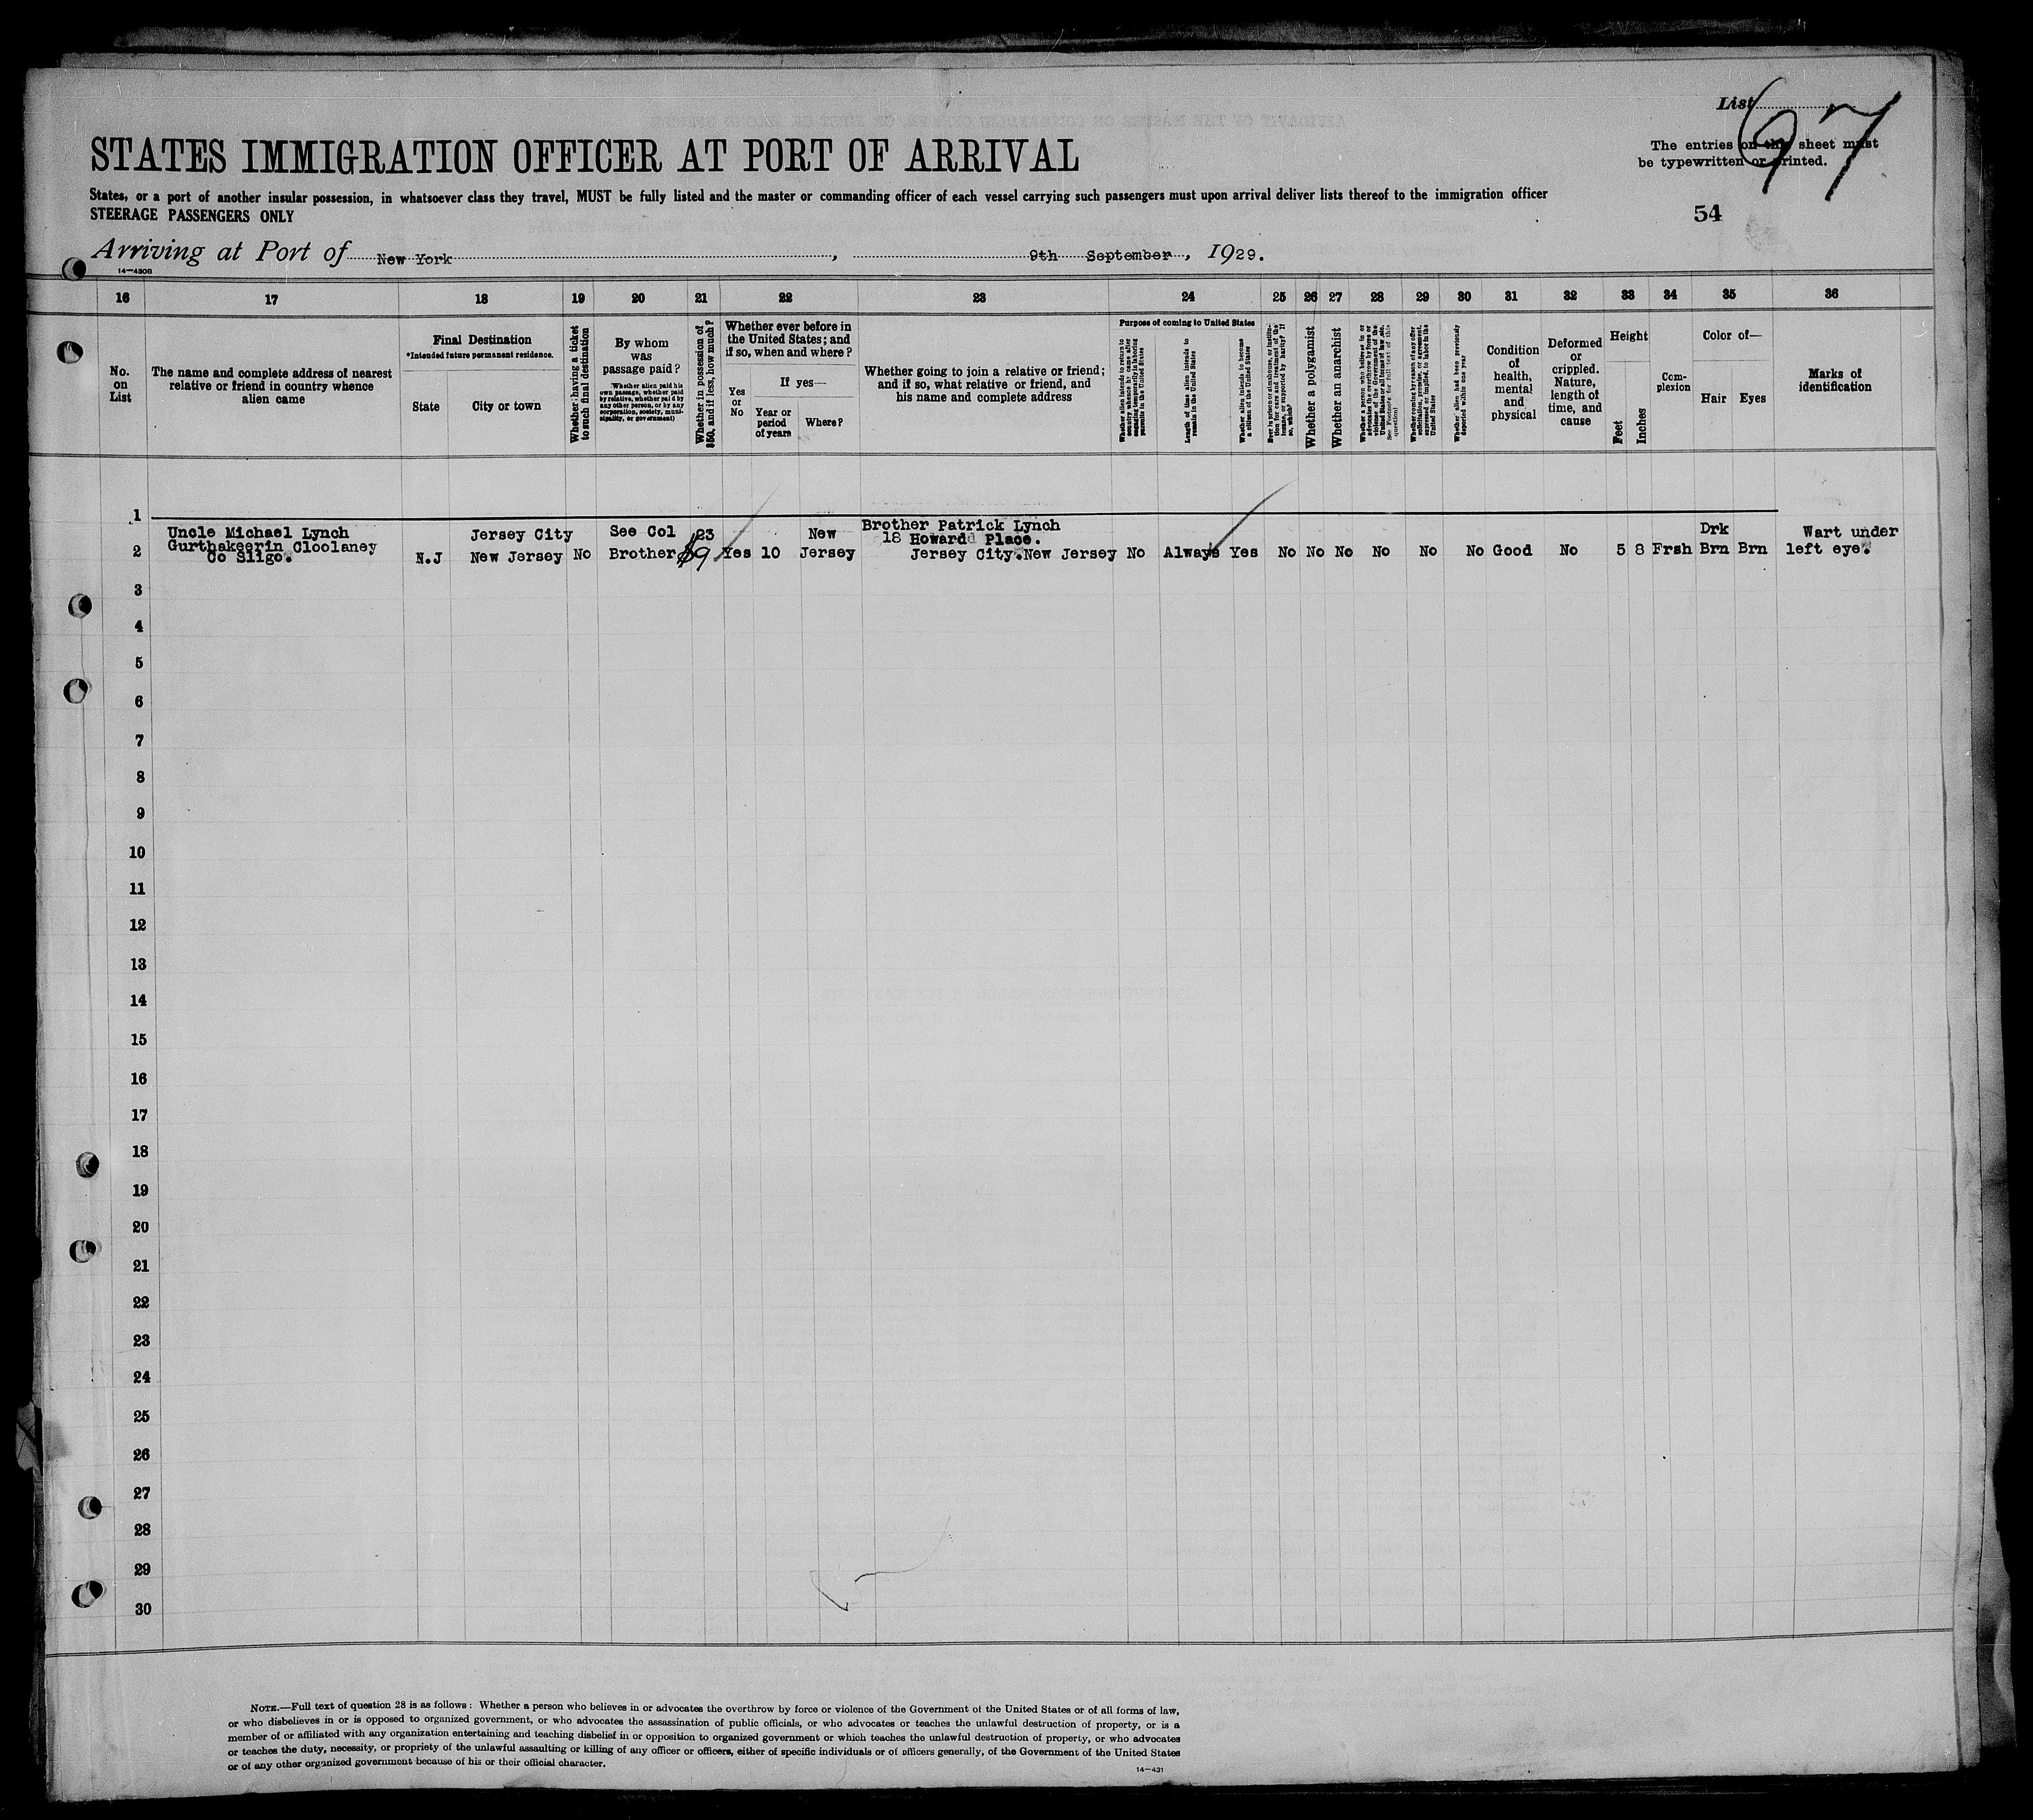 List
97
The entries on this sheet must
be typewritten or printed.
54
STATES IMMIGRATION OFFICER AT PORT OF ARRIVAL
States, or a port of another insular possession, in whatsoever class they travel, MUST be fully listed and the master or commanding officer of each vessel carrying such passengers must upon arrival deliver lists thereof to the immigration officer
STEERAGE PASSENGERS ONLY
Arriving at Port of New York, 9th September, 1929.
14—430B
16 17 18 19 20 21 22 23 24 25 26 27 28 29 30 31 32 33 34 35 36
No.
on
List
The name and complete address of nearest
relative or friend in country whence
alien came
Final Destination
*Intended future permanent residence.
State
City or town
Whether having a ticket
to such final destination
By whom
was
passage paid?
Whether alien paid his
own passage, whether paid
by relative, whether paid by
any other person, or by any
corporation, society, muni-
cipality, or government)
Whether in possession of
$50, and if less, how much?
Whether ever before in
the United States; and
if so, when and where?
Yes
or
No
If yes—
Year or
period
of years
Where?
Whether going to join a relative or friend;
and if so, what relative or friend, and
his name and complete address
Purpose of coming to United States
Whether alien intends to return to
country whence he came after
engaging temporarily in laboring
pursuits in the United States
Length of time alien intends to
remain in the United States
Whether alien intends to become
a citizen of the United States
Ever in prison or almshouse, or institu-
tion for care and treatment of the
insane, or supported by charity? If
so, which?
Whether a polygamist
Whether an anarchist
Whether a person who believes in or
advocates the overthrow by force or
violence of the Government of the
United States or all forms of law, etc.
(See Footnote for full text of this
question)
Whether coming by reason of any offer
solicitation, promise, or agreement,
expressed or implied, to labor in the
United States
Whether alien had been previously
deported within one year
Condition
of
health,
mental
and
physical
Deformed
or
crippled.
Nature,
length of
time, and
cause
Height
Feet
Inches
Com-
plexion
Color of—
Hair Eyes
Marks of
identification
1
Uncle Michael Lynch Jersey City See Col 23 New Brother Patrick Lynch Drk Wart under
Gurthakeerin Cloolaney 18 Howard Place.
2 Co Sligo. N.J New Jersey No Brother $9 Yes 10 Jersey Jersey City.New Jersey No Always Yes No No No No No No Good No 5 8 Frsh Brn Brn left eye.
3
4
5
6
7
8
9
10
11
12
13
14
15
16
17
18
19
20
21
22
23
24
25
26
27
28
29
30
NOTE.—Full text of question 28 is as follows: Whether a person who believes in or advocates the overthrow by force or violence of the Government of the United States or of all forms of law,
or who disbelieves in or is opposed to organized government, or who advocates the assassination of public officials, or who advocates or teaches the unlawful destruction of property, or is a
member of or affiliated with any organization entertaining and teaching disbelief in or opposition to organized government or which teaches the unlawful destruction of property, or who advocates
or teaches the duty, necessity, or propriety of the unlawful assaulting or killing of any officer or officers, either of specific individuals or of officers generally, of the Government of the United States
or of any other organized government because of his or their official character.
14—431